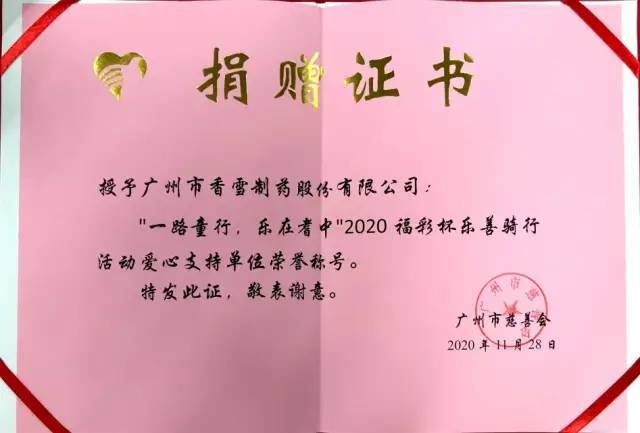 捐赠证书
授予广州市香雪制药股份有限公司：
"一路童行，乐在者中"2020 福彩杯乐善骑行
活动爱心支持单位荣誉称号。
特发此证，敬表谢意。
广州市慈善会
2020 年 11 月 28 日